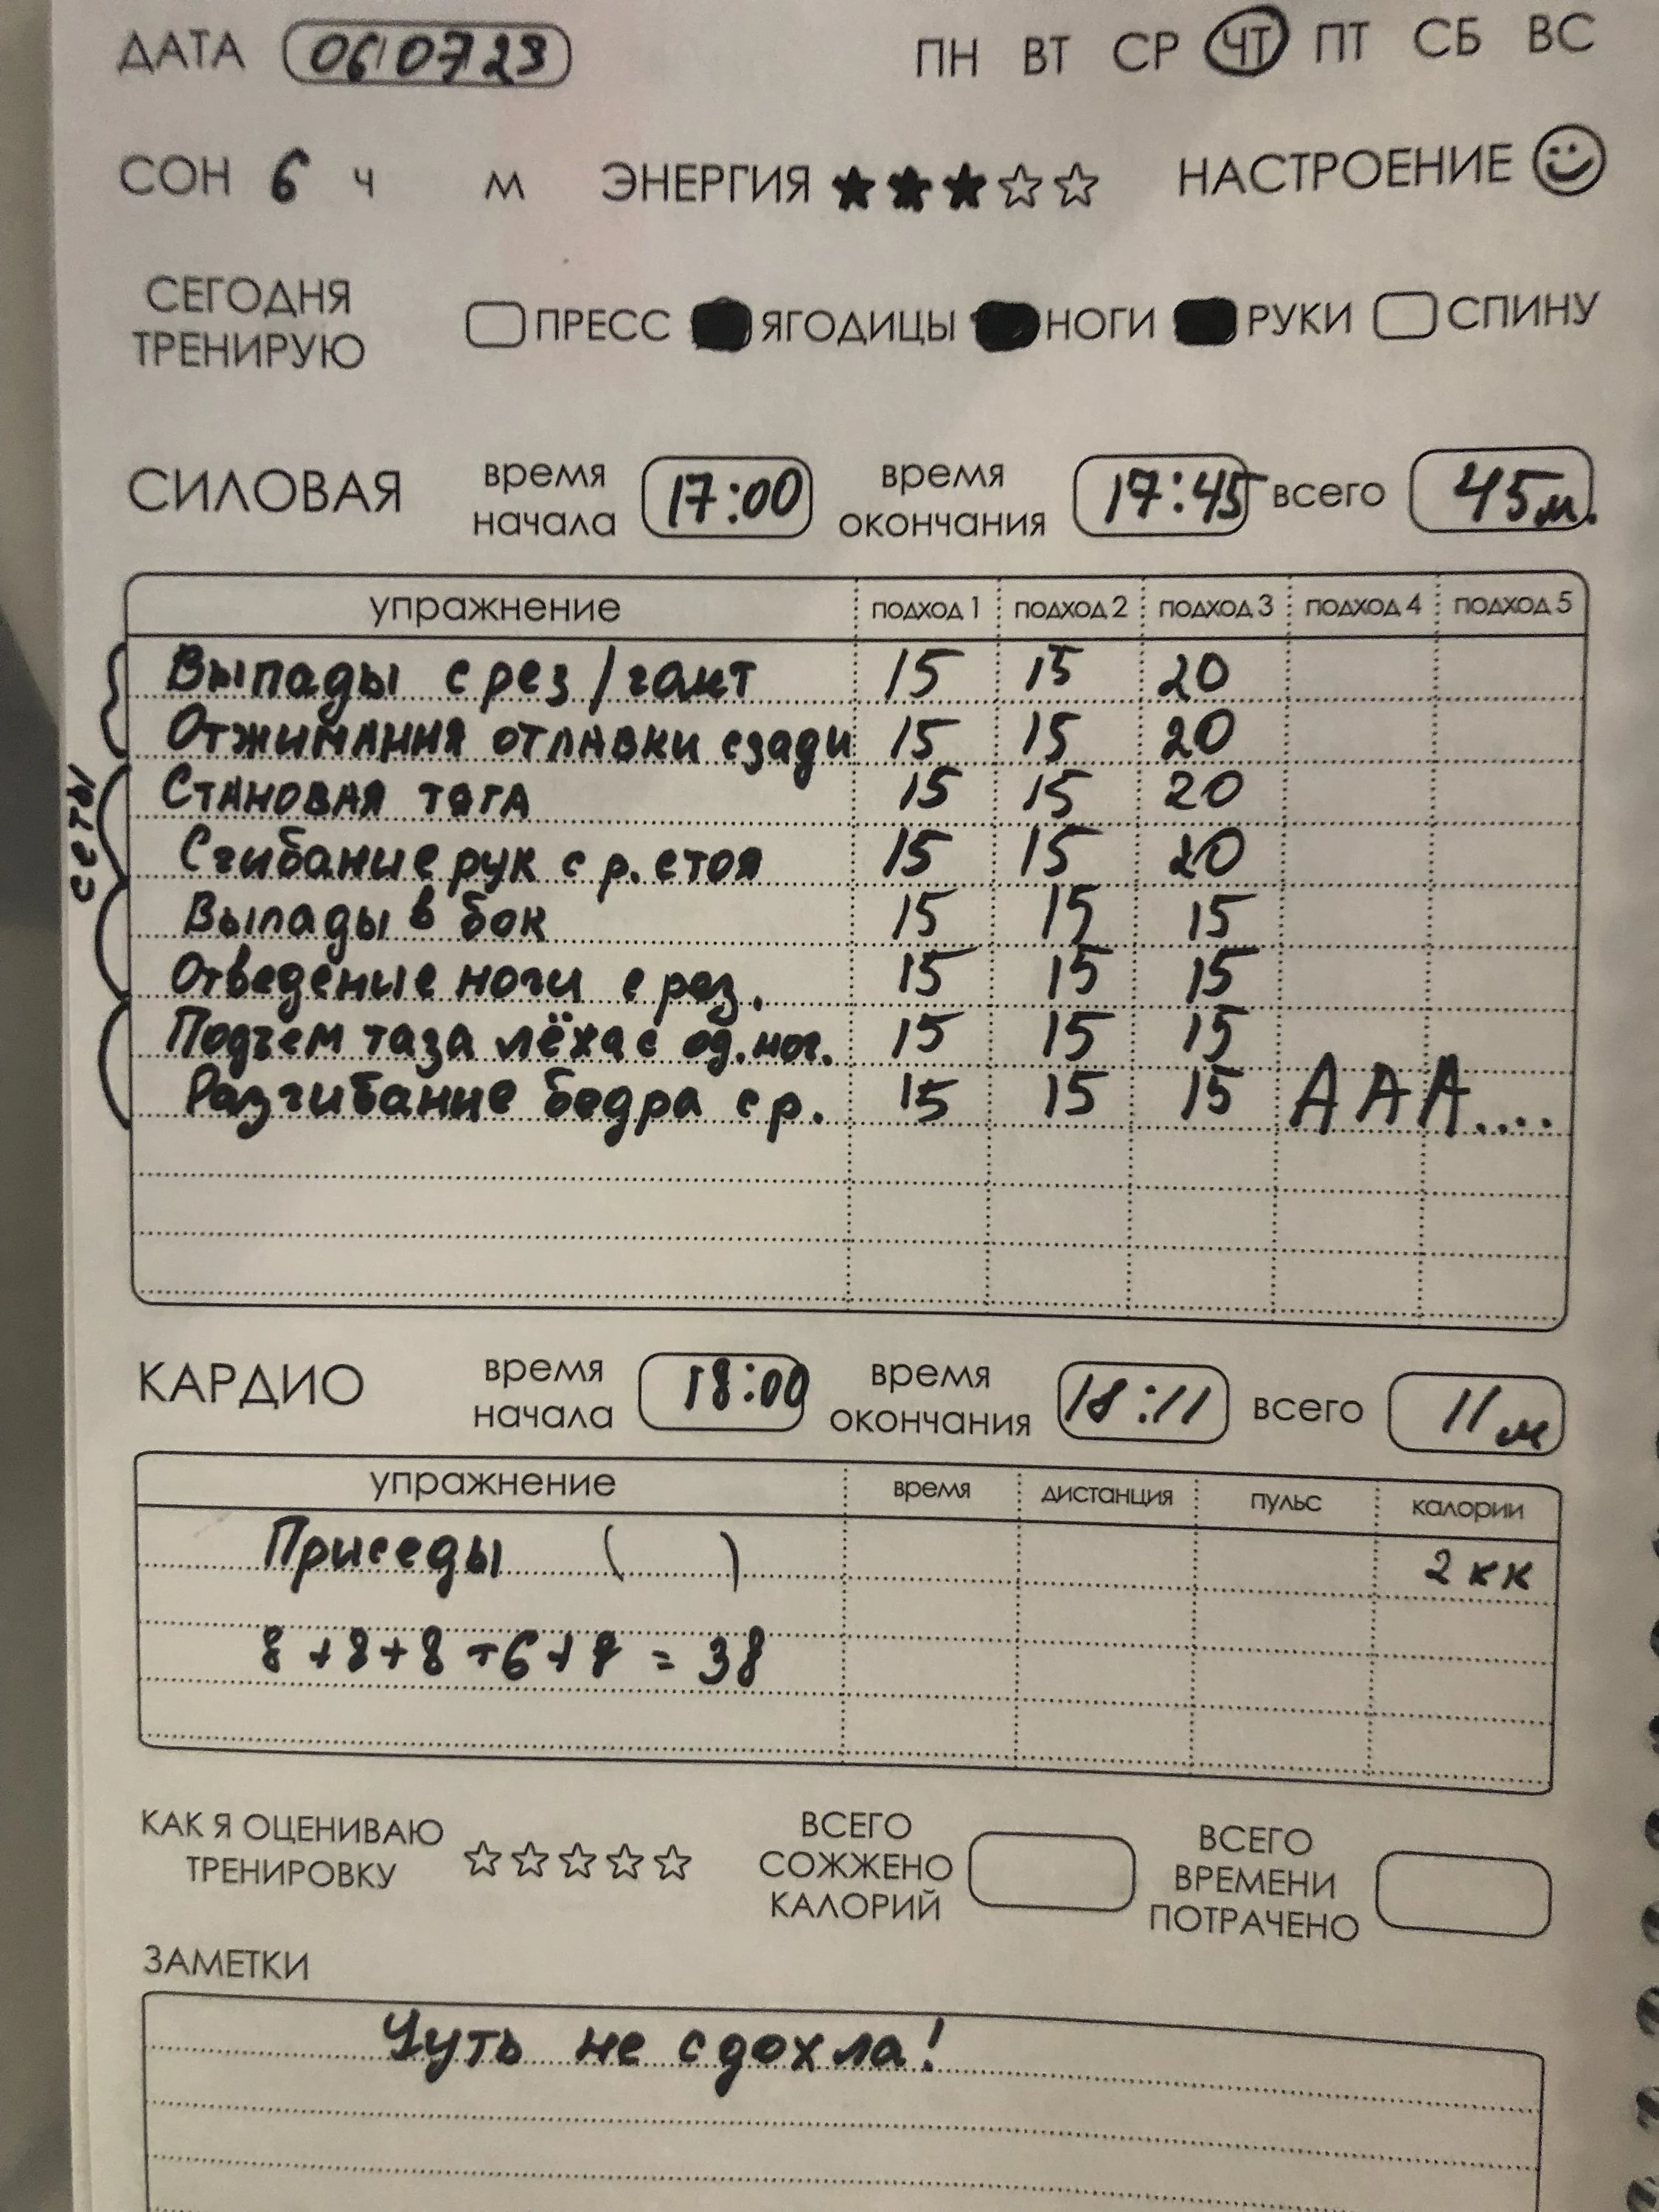 ДАТА 06 07 23 ПН ВТ СР ЧТ ПТ СБ ВС
СОН 6 ч м ЭНЕРГИЯ ★★★☆☆ НАСТРОЕНИЕ
СЕГОДНЯ ТРЕНИРУЮ ПРЕСС ЯГОДИЦЫ НОГИ РУКИ СПИНУ
СИЛОВАЯ время начала 17:00 время окончания 17:45 всего 45м.
упражнение подход 1 подход 2 подход 3 подход 4 подход 5
сеты
Выпады с рез/гант 15 15 20
Отжимания от лавки сзади 15 15 20
Становая тяга 15 15 20
Сгибание рук с р. стоя 15 15 20
Выпады в бок 15 15 15
Отведение ноги с рез. 15 15 15
Подъем таза лёжа с од. ног. 15 15 15
Разгибание бедра с р. 15 15 15 ААА....
КАРДИО время начала 18:00 время окончания 18:11 всего 11 м
упражнение время дистанция пульс калории
Приседы ( ) 2 кк
8+8+8+6+8 = 38
КАК Я ОЦЕНИВАЮ ТРЕНИРОВКУ ☆☆☆☆☆ ВСЕГО СОЖЖЕНО КАЛОРИЙ ВСЕГО ВРЕМЕНИ ПОТРАЧЕНО
ЗАМЕТКИ
Чуть не сдохла!